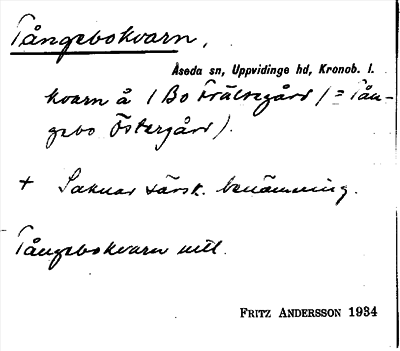 Tångebokvarn,
Åseda sn, Uppvidinge hd, Kronob. l.
kvarn å / Bo Frälsegård / = Tån-
gebo Östergård).
+ Saknar särsk. benämning.
Tångebokvarn utl.
FRITZ ANDERSSON 1934